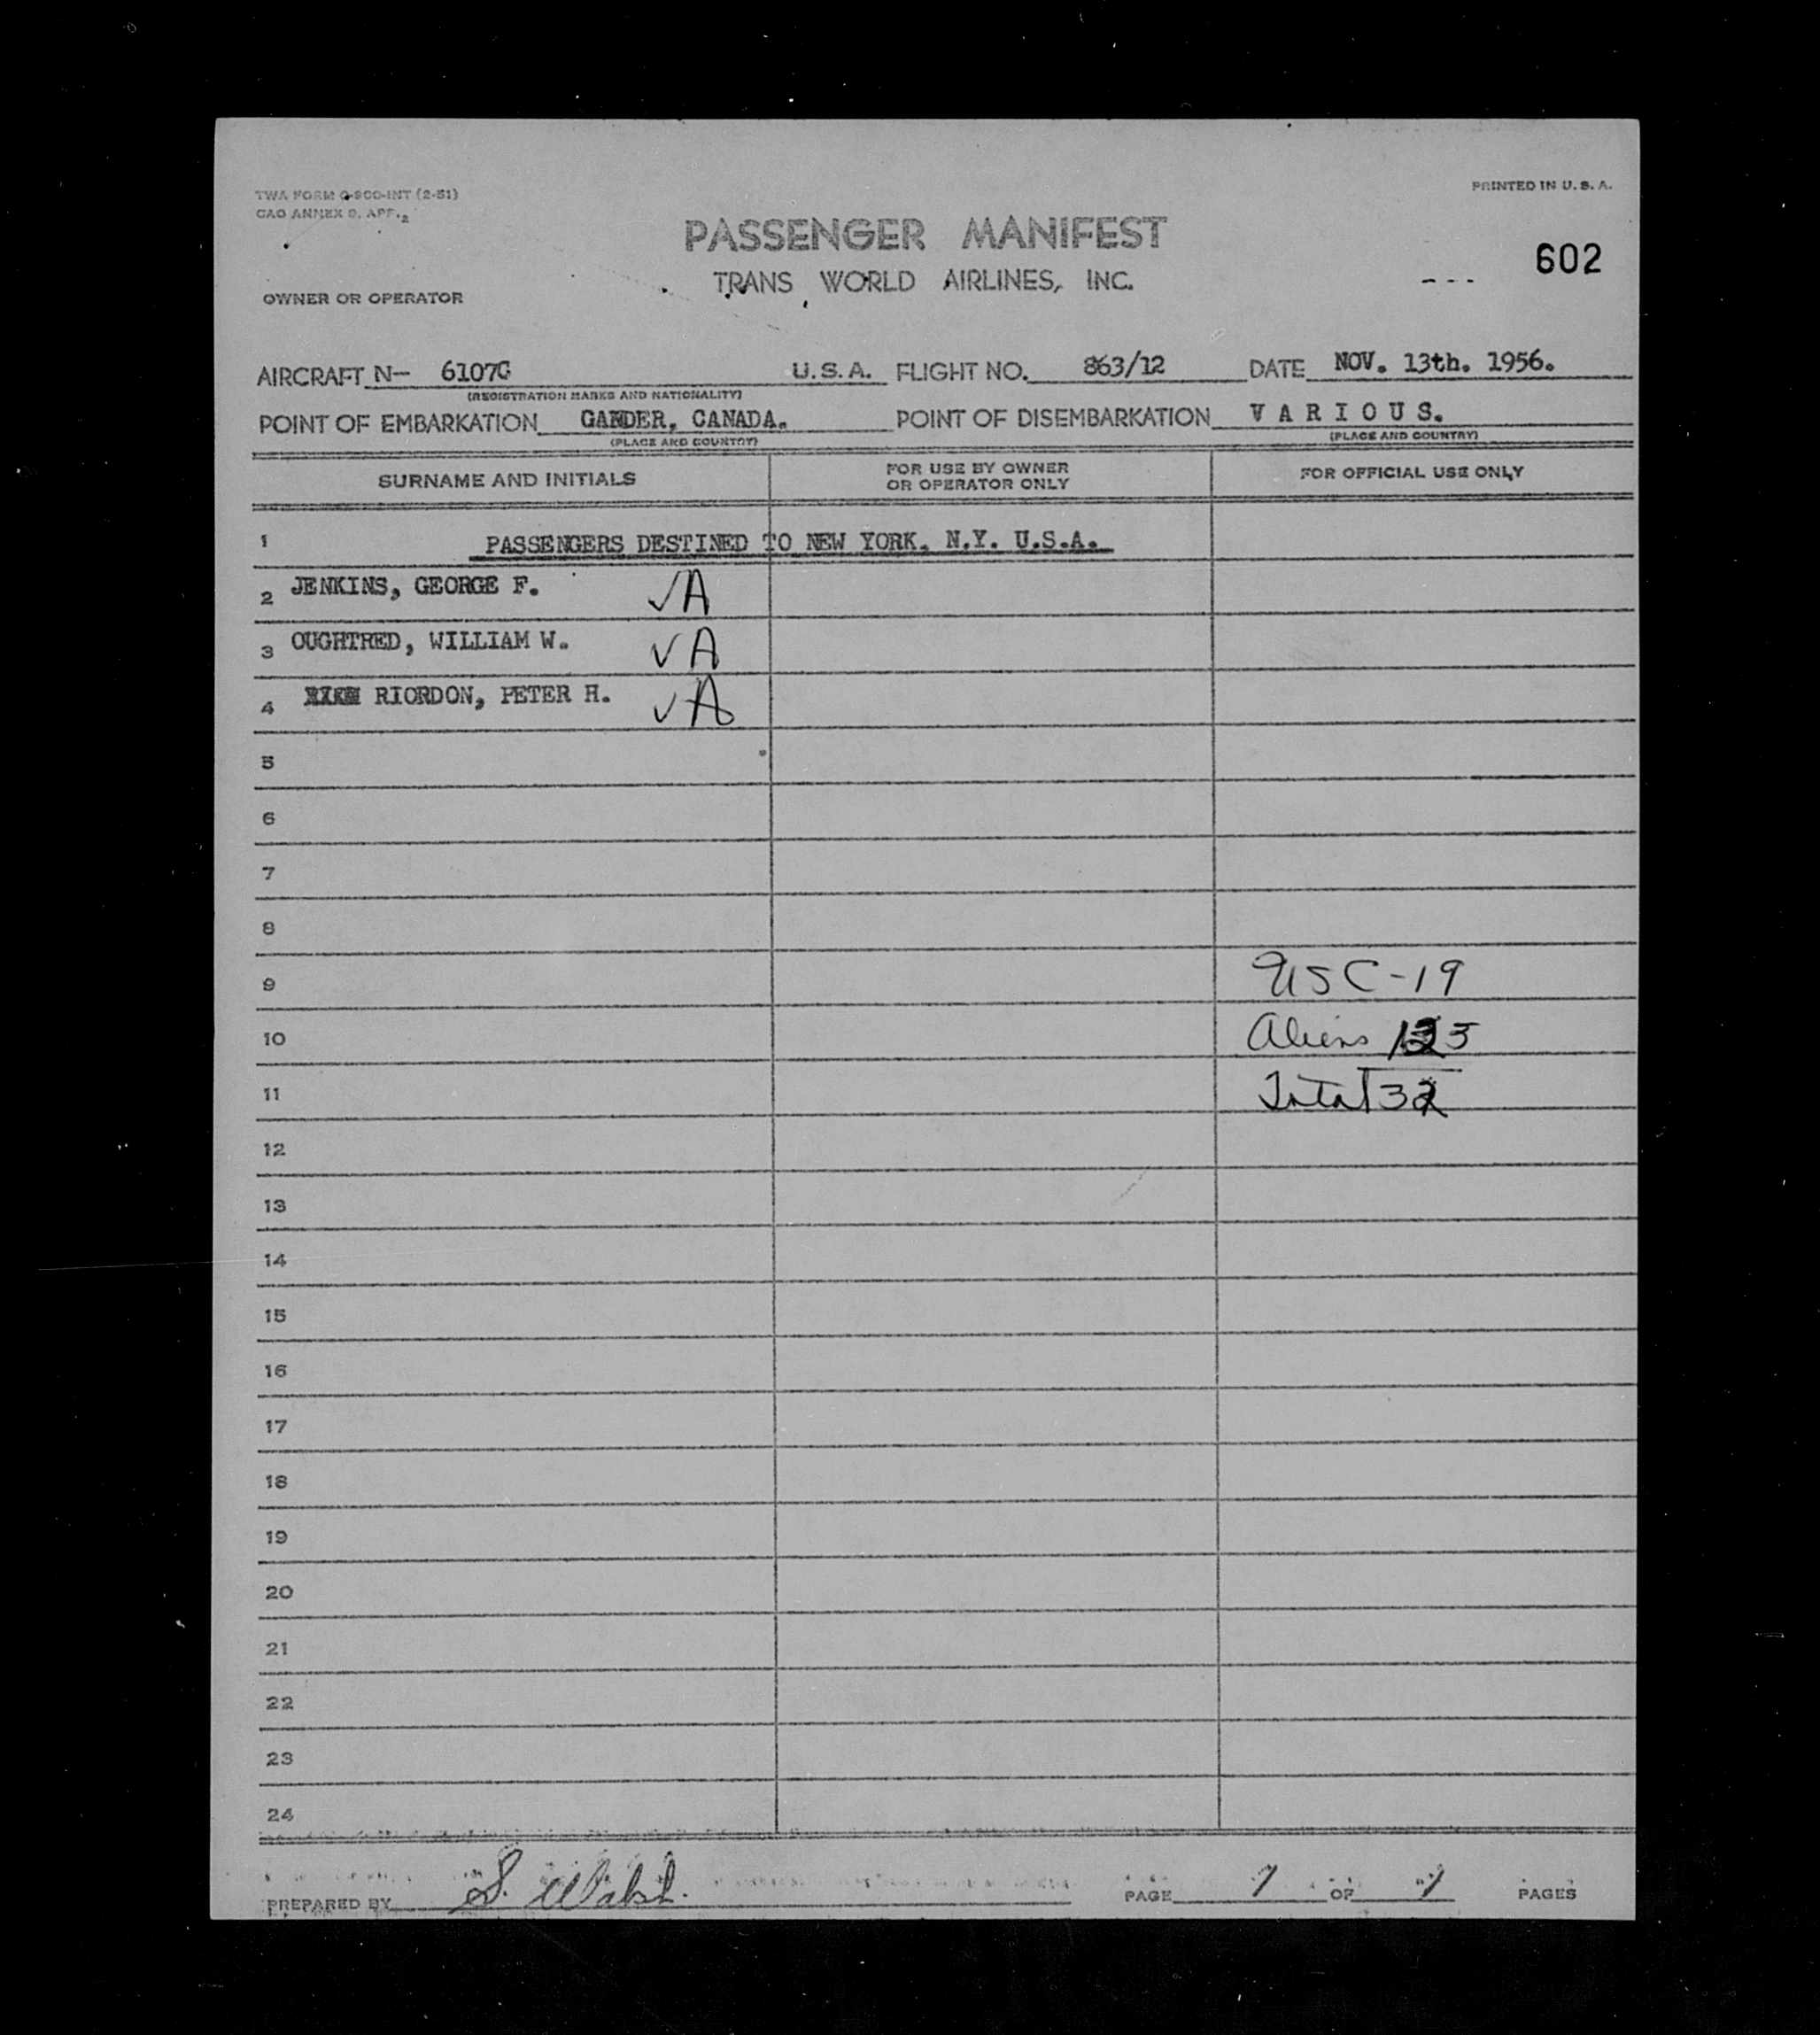 TWA FORM O-900-INT (2-51)
CAO ANNEX 9, APP. 2
PRINTED IN U. S. A.
PASSENGER MANIFEST
602
TRANS WORLD AIRLINES, INC.
---
OWNER OR OPERATOR
AIRCRAFT N- 6107C U.S.A. FLIGHT NO. 863/12 DATE NOV. 13th. 1956.
(REGISTRATION MARKS AND NATIONALITY)
POINT OF EMBARKATION GANDER, CANADA. POINT OF DISEMBARKATION V A R I O U S.
(PLACE AND COUNTRY) (PLACE AND COUNTRY)
SURNAME AND INITIALS FOR USE BY OWNER OR OPERATOR ONLY FOR OFFICIAL USE ONLY
1 PASSENGERS DESTINED TO NEW YORK. N.Y. U.S.A.
2 JENKINS, GEORGE F. √A
3 OUGHTRED, WILLIAM W. √A
4 RIORDON, PETER H. √A
5
6
7
8
9 USC-19
10 Aliens
11 Total 32
12
13
14
15
16
17
18
19
20
21
22
23
24
PREPARED BY S. Walsh. PAGE 1 OF 1 PAGES